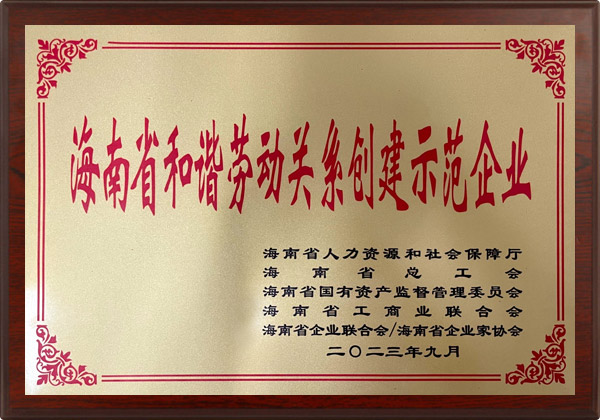 海南省和谐劳动关系创建示范企业
海南省人力资源和社会保障厅
海南省总工会
海南省国有资产监督管理委员会
海南省工商业联合会
海南省企业联合会/海南省企业家协会
二〇二三年九月